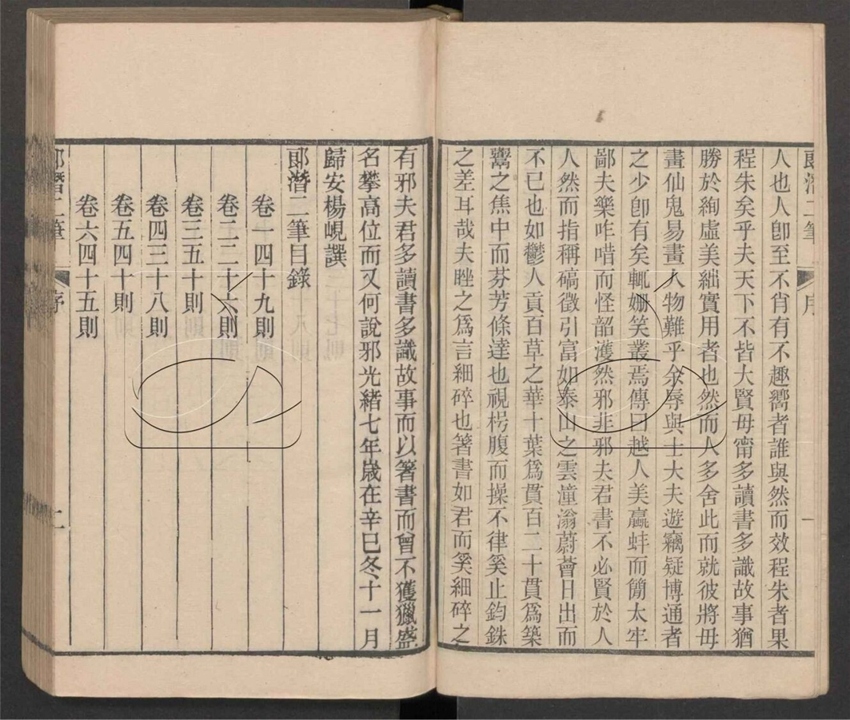 郎潛二筆 序 一
人也人卽至不肖有不趣嚮者誰與然而效程朱者果
程朱矣乎夫天下不皆大賢毋甯多讀書多識故事猶
勝於絢虛美絀實用者也然而人多舍此而就彼將毋
畫仙鬼易畫人物難乎余辱與士大夫遊竊疑博通者
之少卽有矣輒姍笑叢焉傳曰越人美蠃蚌而簡太牢
鄙夫樂咋唶而怪韶濩然邪非邪夫君書不必賢於人
人然而指稱碻徵引富如泰山之雲潼滃蔚薈日出而
不已也如鬱人貢百草之華十葉爲貫百二十貫爲築
鬻之焦中而芬芳條達也視枵腹而操不律奚止鈞銖
之差耳哉夫脞之爲言細碎也箸書如君而奚細碎之
有邪夫君多讀書多識故事而以箸書而曾不獲獵盛
名攀高位而又何說邪光緒七年歲在辛巳冬十一月
歸安楊峴譔
郎潛二筆目錄
卷一四十九則
卷二二十六則
卷三五十則
卷四三十八則
卷五四十則
卷六四十五則
郎潛二筆 序 二